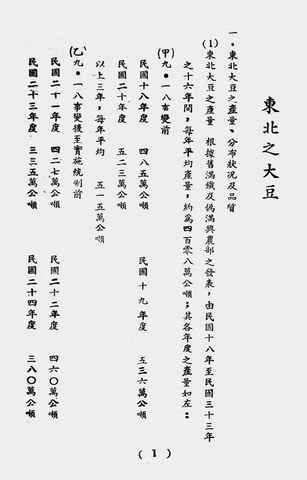 東北之大豆
一．東北大豆之產量、分布狀況及品質
(1)東北大豆之產量　根據舊滿鐵及偽滿興農部之發表，由民國十八年至民國三十三年
之十六年間，每年平均產量，約為四百零八萬公噸，其各年度之產量如左：
(甲)九・一八事變前
民國十八年度　四八五萬公噸　民國十九年度　五三六萬公噸
民國二十年度　五二三萬公噸
以上三年，每年平均　五一五萬公噸
(乙)九・一八事變後至實施統制前
民國二十一年度　四二七萬公噸　民國二十二年度　四六〇萬公噸
民國二十三年度　三三五萬公噸　民國二十四年度　三八〇萬公噸
(1)